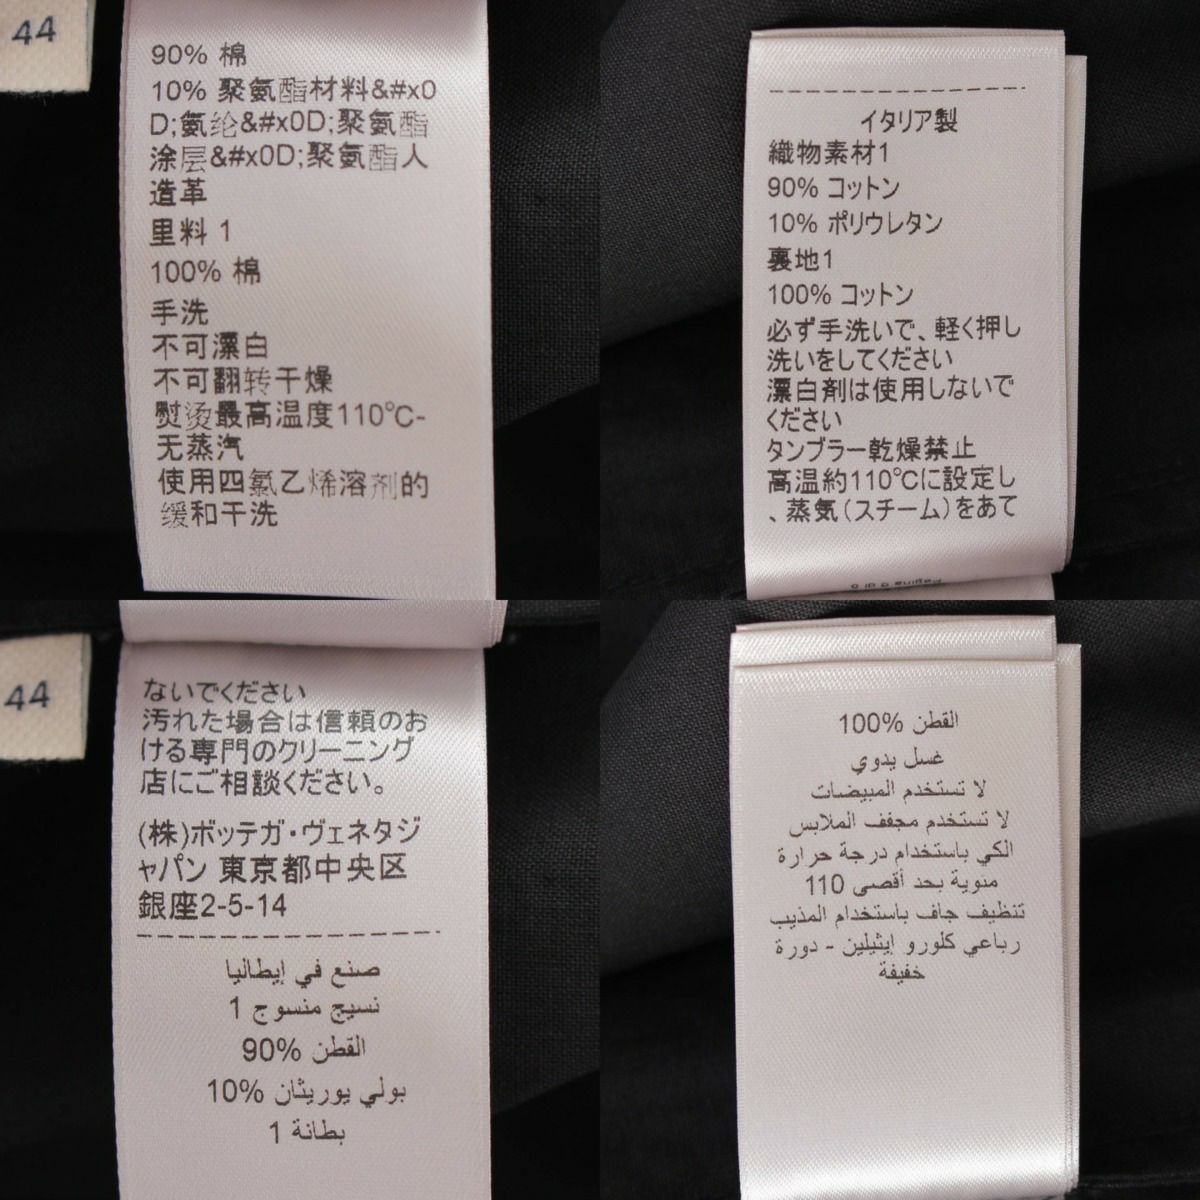 44
90% 棉
10% 聚氨酯材料&#x0
D;氨纶&#x0D;聚氨酯
涂层&#x0D;聚氨酯人
造革
里料 1
100% 棉
手洗
不可漂白
不可翻转干燥
熨烫最高温度110℃-
无蒸汽
使用四氯乙烯溶剂的
缓和干洗
イタリア製
織物素材1
90% コットン
10% ポリウレタン
裏地1
100% コットン
必ず手洗いで、軽く押し
洗いをしてください
漂白剤は使用しないで
ください
タンブラー乾燥禁止
高温約110℃に設定し
、蒸気(スチーム)をあて
44
ないでください
汚れた場合は信頼のお
ける専門のクリーニング
店にご相談ください。
(株)ボッテガ・ヴェネタジ
ャパン 東京都中央区
銀座2-5-14
صنع في إيطاليا
نسيج منسوج 1
القطن %90
بولي يوريثان %10
بطانة 1
القطن %100
غسل يدوي
لا تستخدم المبيضات
لا تستخدم مجفف الملابس
الكي باستخدام درجة حرارة
منوية بحد أقصى 110
تنظيف جاف باستخدام المذيب
رباعي كلورو إيثيلين - دورة
خفيفة